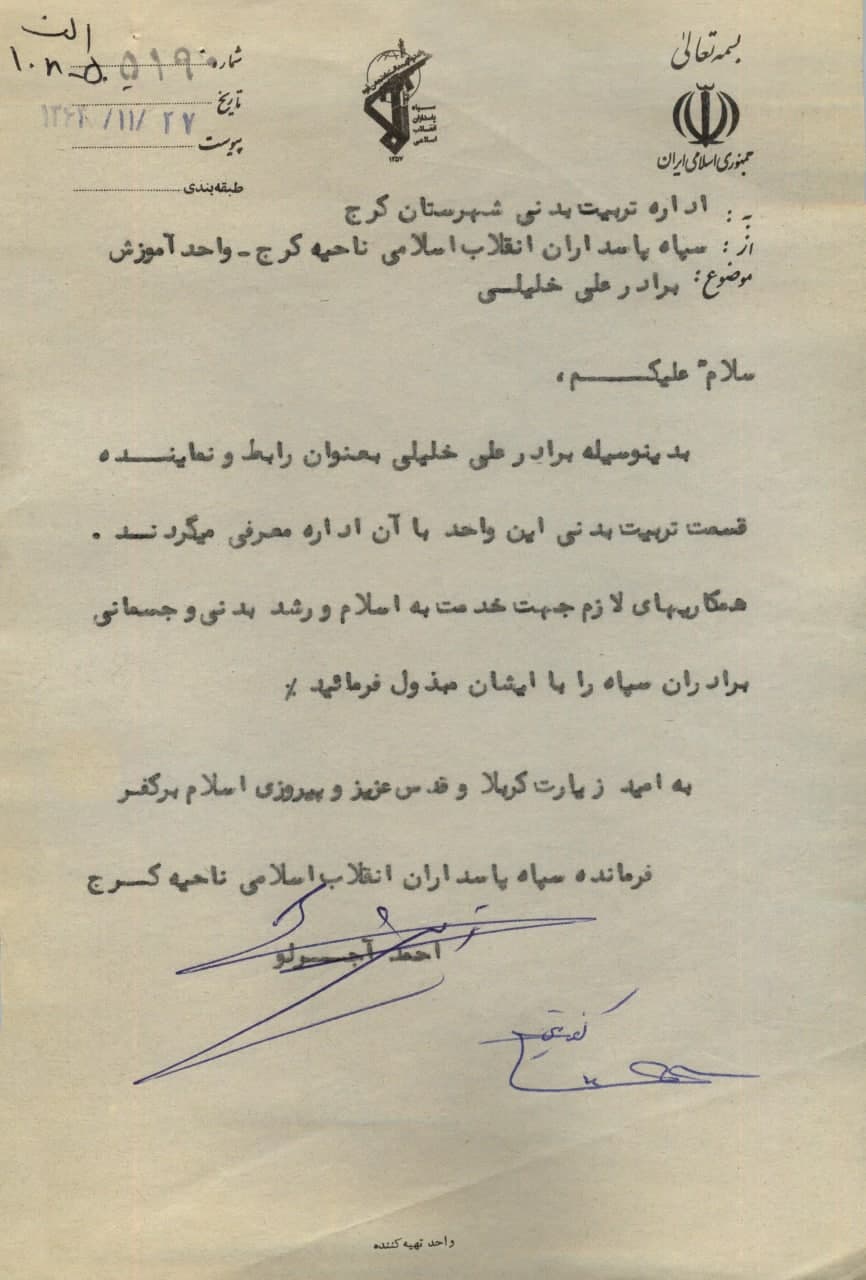 بسمه تعالی
جمهوری اسلامی ایران
سپاه
پاسداران
انقلاب
اسلامی
۱۳۵۷
الف
شماره ۵۱۹۰
تاریخ ۲۷ /۱۱/
پیوست
طبقه‌بندی
به : اداره تربیت بدنی شهرستان کرج
از : سپاه پاسداران انقلاب اسلامی ناحیه کرج ـ واحد آموزش
موضوع : برادر علی خلیلی
سلام علیکم ،
بدینوسیله برادر علی خلیلی بعنوان رابط و نماینده
قسمت تربیت بدنی این واحد با آن اداره معرفی میگردند .
همکاریهای لازم جهت خدمت به اسلام و رشد بدنی و جسمانی
برادران سپاه را با ایشان مبذول فرمائید ٪
به امید زیارت کربلا و قدس عزیز و پیروزی اسلام بر کفر
فرمانده سپاه پاسداران انقلاب اسلامی ناحیه کرج
احمد آجرلو
واحد تهیه کننده